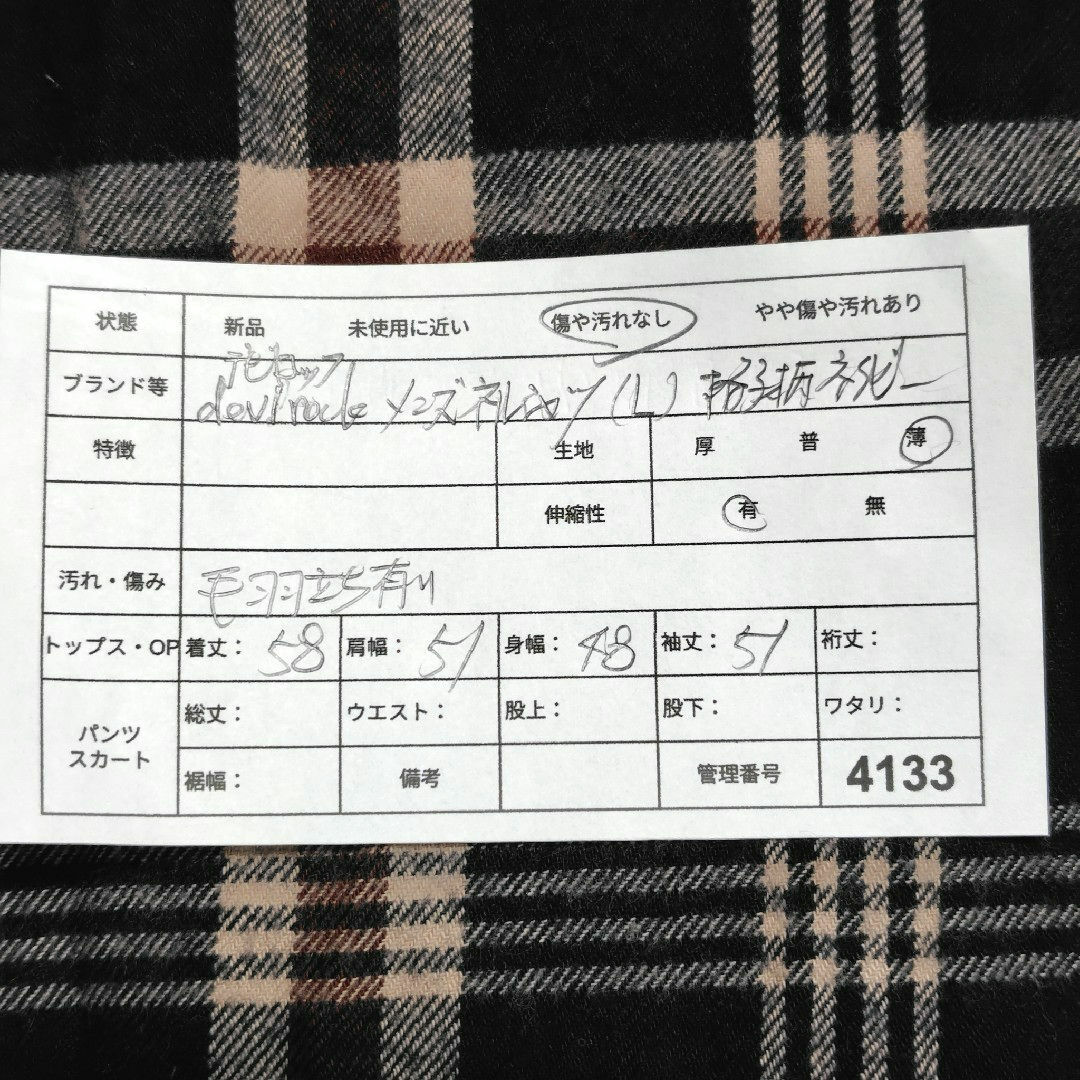 状態 新品 未使用に近い 傷や汚れなし やや傷や汚れあり
デビロック
ブランド等 devirock メンズネルシャツ(L) 格子柄ネイビー
特徴 生地 厚 普 薄
伸縮性 有 無
汚れ・傷み 毛羽立ち有り
トップス・OP 着丈: 58 肩幅: 51 身幅: 48 袖丈: 51 裄丈:
パンツ スカート 総丈: ウエスト: 股上: 股下: ワタリ:
裾幅: 備考 管理番号 4133